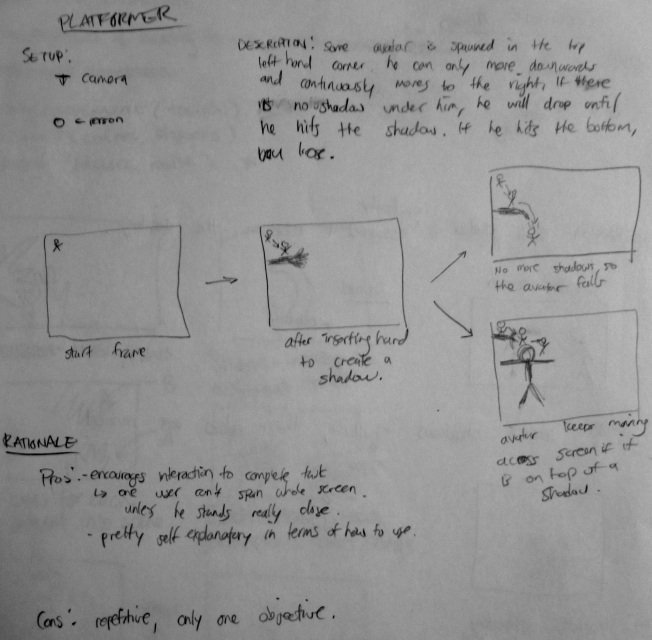 PLATFORMER
SETUP:
camera
person
DESCRIPTION: Some avatar is spawned in the top
left hand corner. he can only move downwards
and continuously moves to the right, If there
is no shadow under him, he will drop until
he hits the shadow. If he hits the bottom,
you lose.
start frame
after inserting hand
to create a
shadow.
No more shadows, so
the avatar falls
avatar keeps moving
across screen if it
is on top of a
shadow.
RATIONALE
Pros: - encourages interaction to complete task
↳ one user can't span whole screen.
unless he stands really close.
- pretty self explanatory in terms of how to use.
Cons: repetitive, only one objective.